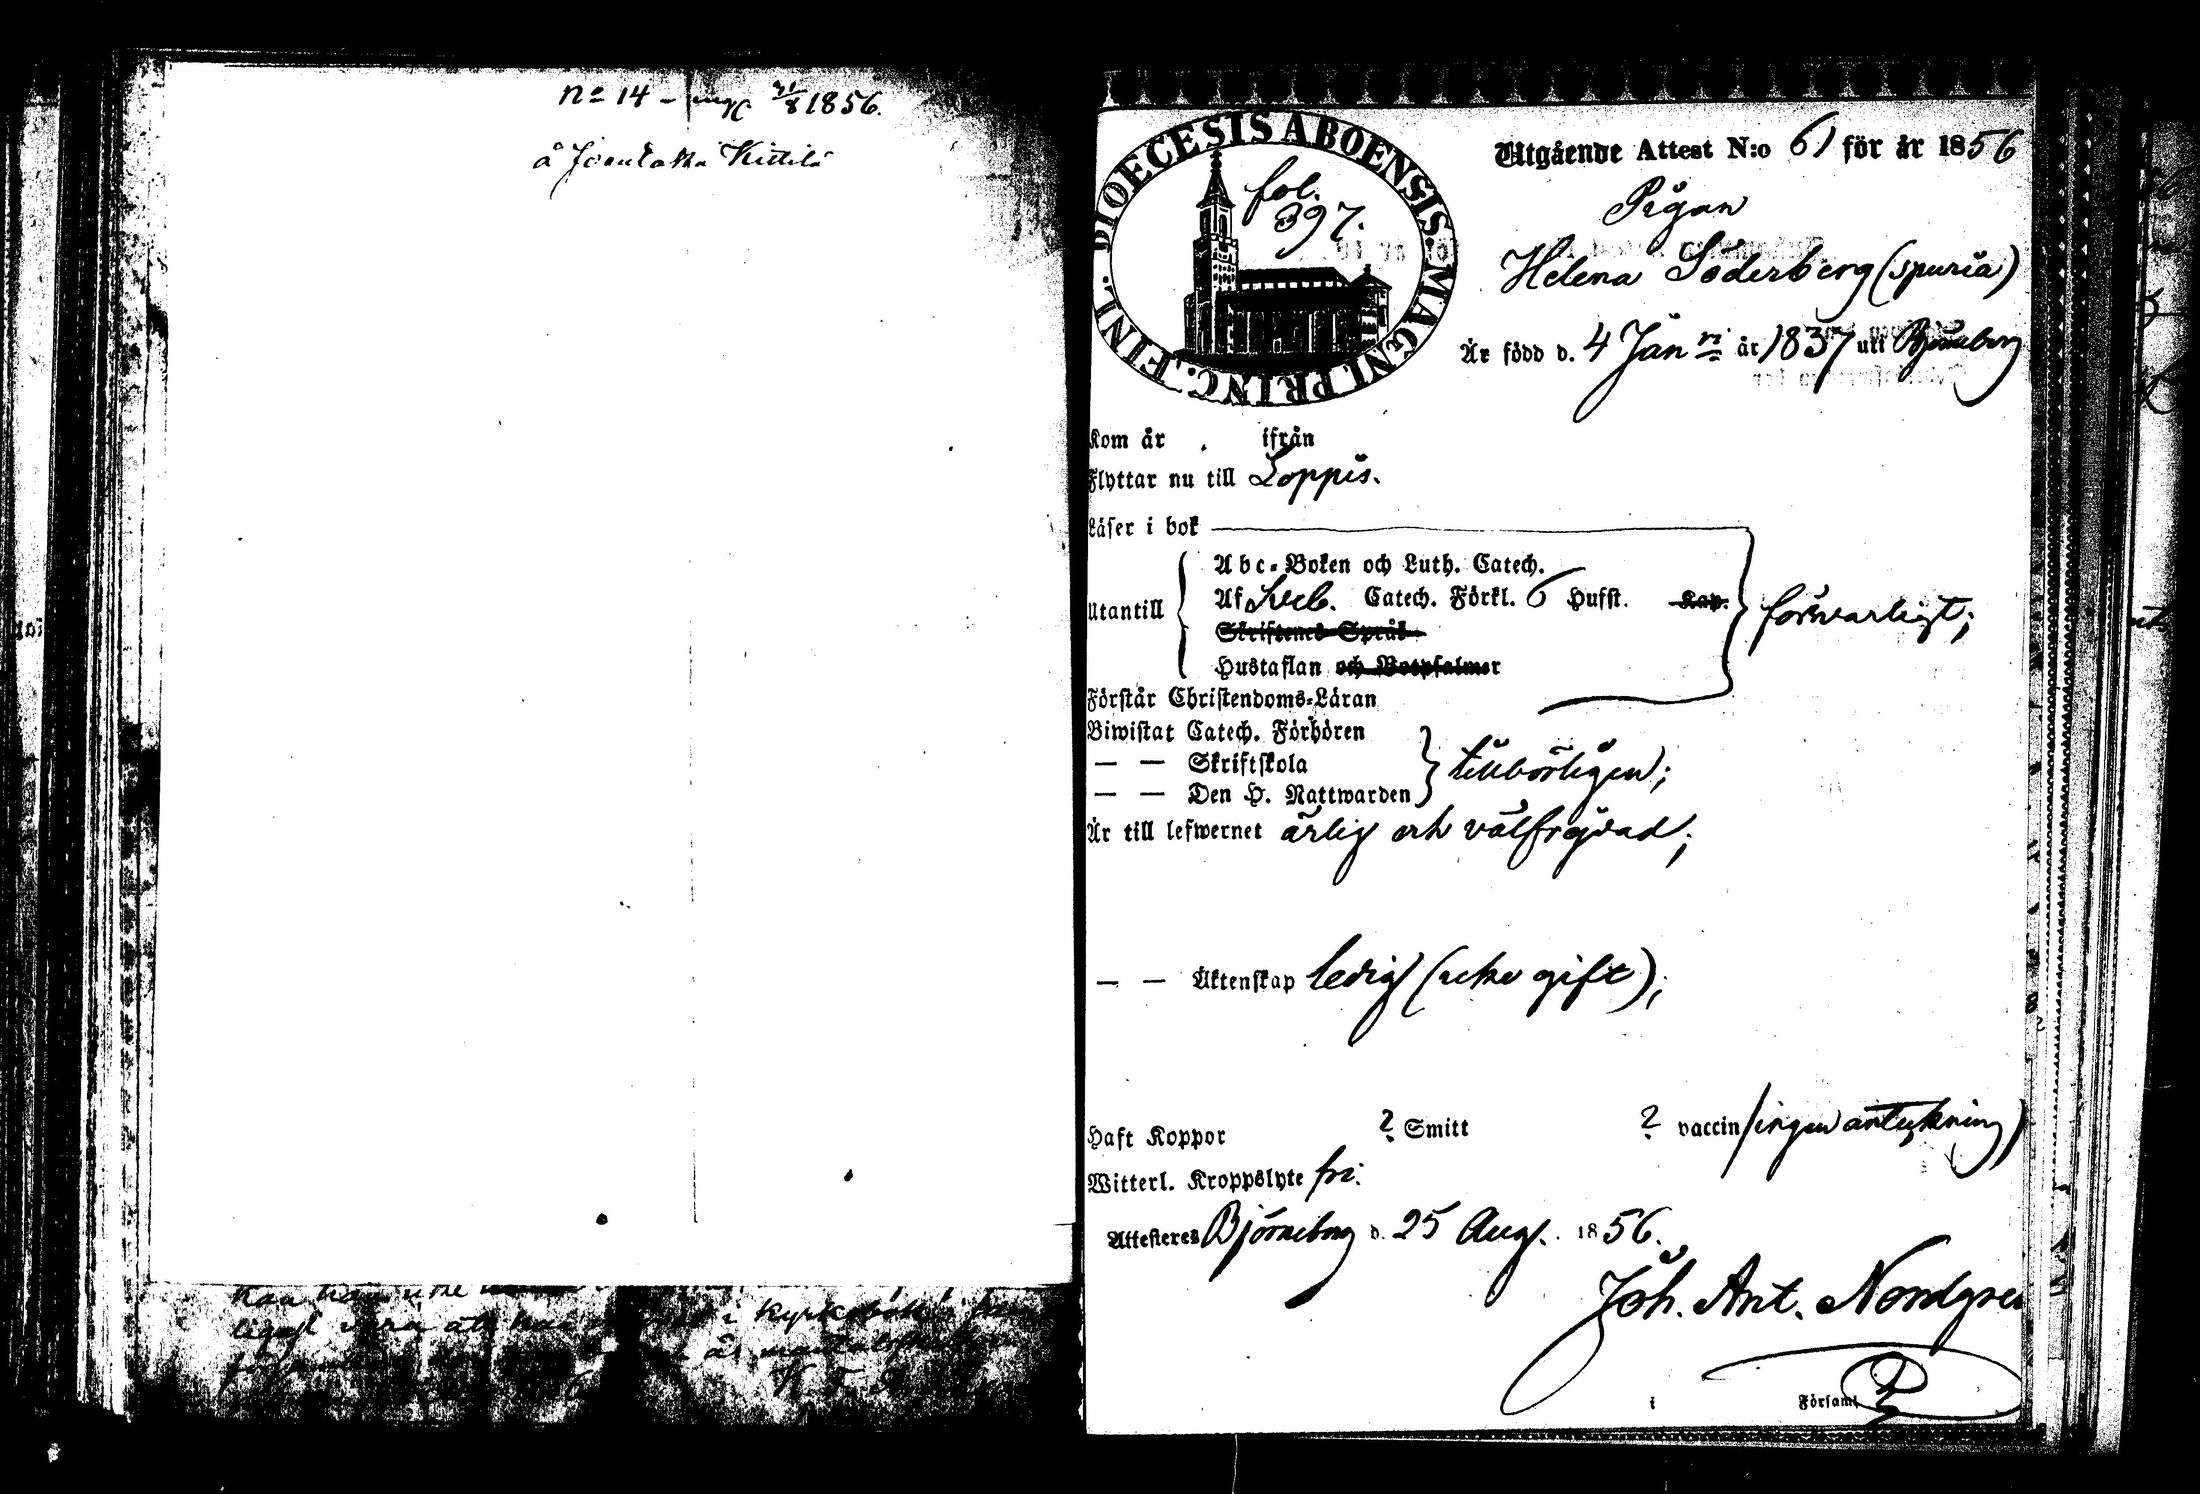 No 14 – 31/8 1856.
å Joentaka Kittilä
DIOECESIS ABOENSIS. MAGNI. PRINC. FINL.
fol.
397.
Utgående Attest N:o 61 för år 1856
Pigan
Helena Söderberg (spuria)
Är född d. 4 Jan ri år 1837 uti Björneborg
Kom år ifrån
Flyttar nu till Loppis.
Läser i bok
Utantill
Abc-Boken och Luth. Catech.
Af Sveb. Catech. Förkl. 6 Hufst. Kap.
Skriftenes Språk
Hustaflan och Botpsalmer
förswarligt;
Förstår Christendoms-Läran
Biwistat Catech. Förhören
— — Skriftskola
— — Den H. Nattwarden
tillbörligen;
Är till lefwernet ärlig och välfrejdad;
— — Äktenskap ledig (icke gift);
Haft Koppor ? Smitt ? vaccin (ingen anteckning)
Witterl. Kroppslyte fri.
Attesteres Björneborg d. 25 Aug. 1856.
Joh. Ant. Nordgren
i Församl
kan han icke
ligast vara att i kyrkobok
år